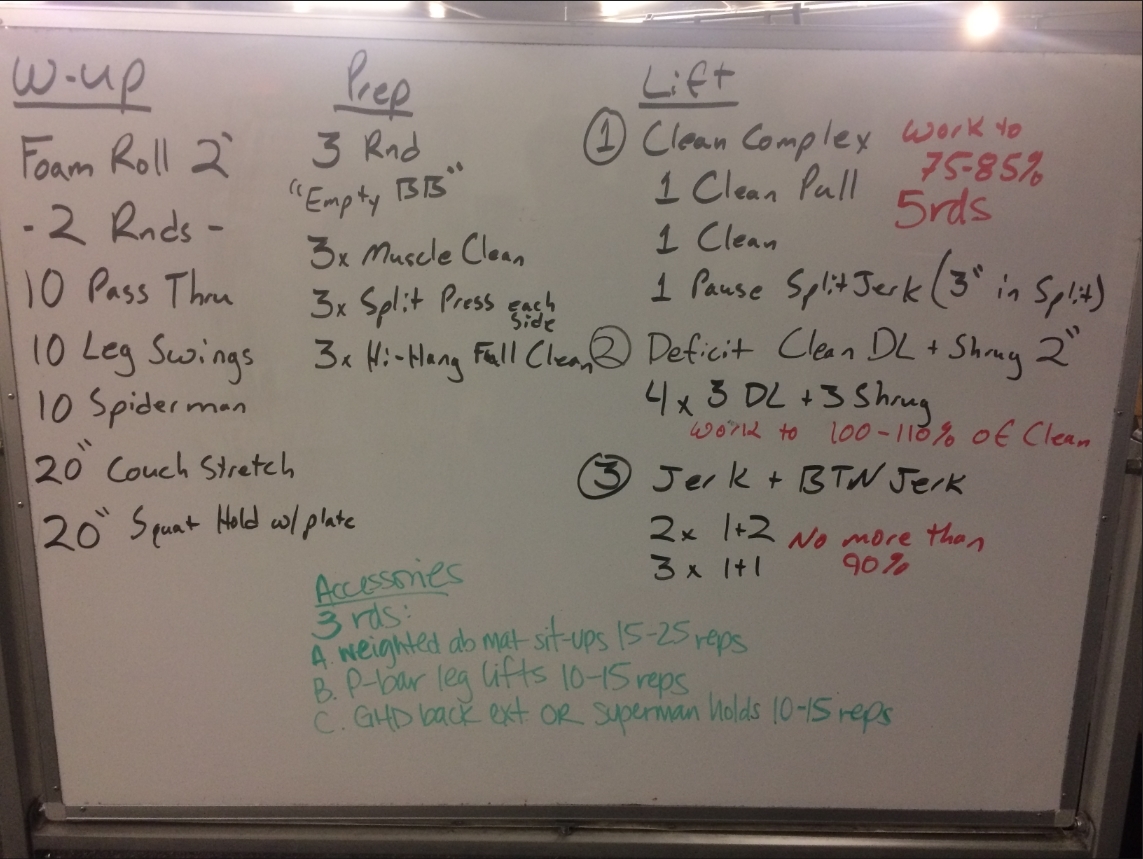 W-up
Foam Roll 2`
- 2 Rnds -
10 Pass Thru
10 Leg Swings
10 Spiderman
20" Couch Stretch
20" Squat Hold w/plate
Prep
3 Rnd
"Empty BB"
3x Muscle Clean
3x Split Press each side
3x Hi-Hang Full Clean
Lift
① Clean Complex
1 Clean Pull
1 Clean
1 Pause Split Jerk (3" in Split)
work to
75-85%
5rds
② Deficit Clean DL + Shrug 2"
4 x 3 DL + 3 Shrug
work to 100-110% of Clean
③ Jerk + BTN Jerk
2x 1+2
3 x 1+1
No more than
90%
Accessories
3 rds:
A. weighted ab mat sit-ups 15-25 reps
B. P-bar leg lifts 10-15 reps
C. GHD back ext. OR superman holds 10-15 reps